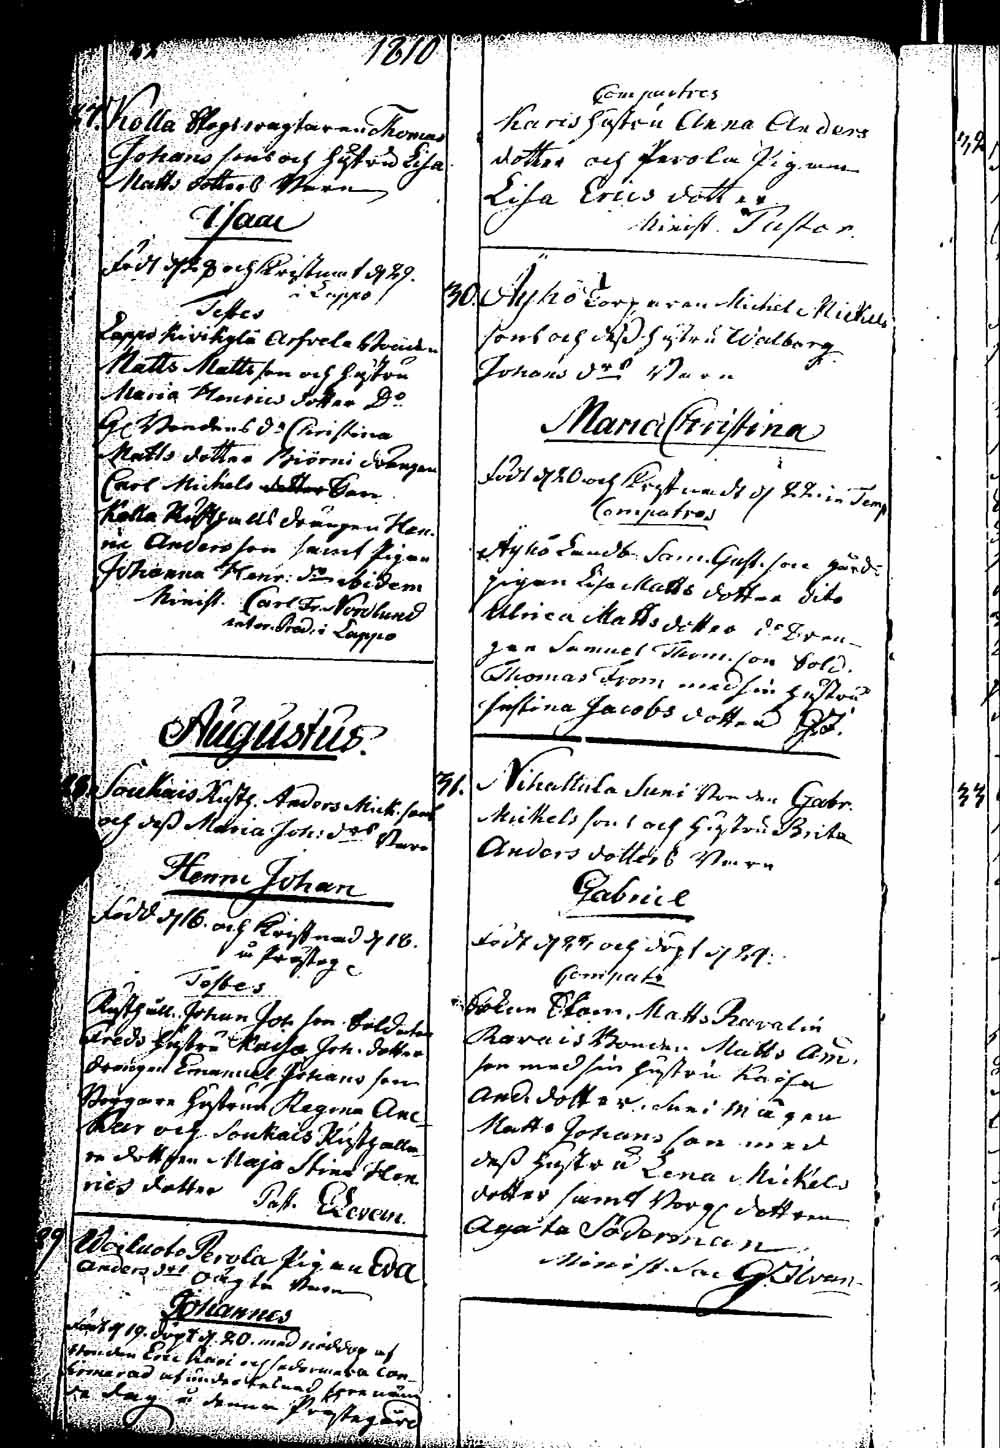 1810
27. Kolla Skogswagtaren Thomas
Johans sons och Hustru Lisa
Matts dotters Barn
Isaac
Född d 28 och Kristnat d 29.
i Lappo
Testes
Lappo Kivikylä
Matts Matts son och Hustru
Maria Henrics dotter Do
Christina
Matts dotter Biörni drängen
Carl Michels son
Kolla Rusthålls drängen Hen-
ric Anders son samt Pigan
Johanna Henr: dr ibidem
Minist. Carl Fr. Nordlund
Pred: i Lappo
Augustus.
28. Soukais Rusth. Anders Mick: sons
och dess Maria Joh: drs Barn
Henric Johan
Född d 16. och Kristnad d 18.
i Prästeg
Testes
Rusthåll. Johan Joh. son Soldaten
Freds Hustru Kaisa Joh. dotter
drängen Emanuel Johans son
Hustrun Regina
och Soukais Rusthålla-
re dottren Maja Stina Hen-
rics dotter
Past. Elevan.
29 Wailuoto Perola Pigan Eva
Anders drs Oägta Barn
Johannes
Född d 19. döpt d 20. med nöddop af
Bonden Eric Kari och sedermera con-
firmerad af undertecknad
de dag i denna Prästegård
Compatres
Karis Hustru Anna Anders
dotter och Perola Pigan
Lisa Erics dotter
Minist. Pastor.
30. Äyhö Torparen Michel Mickels
sons och dess Hustru Walborg
Johans drs Barn
Maria Christina
Född d 20 och Kristnades d 22 in Temp
Compatres
Äyhö Landb. Sam. Gust. son gårds
pigan Lisa Matts dotter dito
Ulrica Matts dotter do Dren-
gen Samuel Thom. son Sold.
Thomas From med sin Hustru
Justina Jacobs dotter
31. Nihattula Juni Bonden Gabr.
Mickels sons och Hustru Brita
Anders dotters Barn
Gabriel
Född d 27, och döpt d 29.
Compatr
Matts Ravalin
Ravais Bonden Matts And.
son med sin Hustru Kaisa
And. dotter. Juni Mågen
Matts Johans son med
dess Hustru Lena Mickels
dotter samt dottren
Agata Söderman
Minist. Sac G. Ilvan
32
33